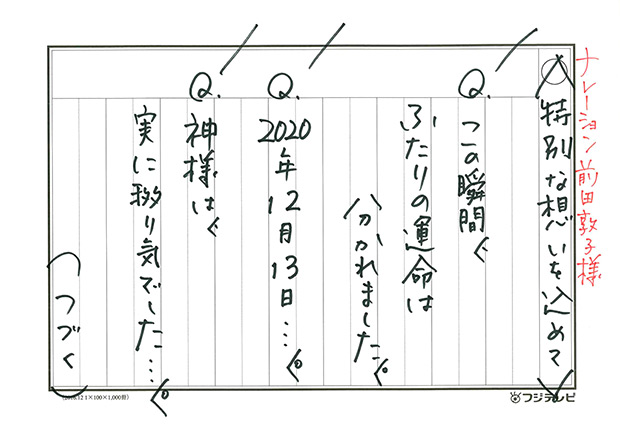 ナレーション 前田敦子様
特別な想いを込めて
Q. この瞬間
ふたりの運命は
分かれました。
Q. 2020年12月13日…。
Q. 神様は
実に移り気でした…。
(つづく)
フジテレビ